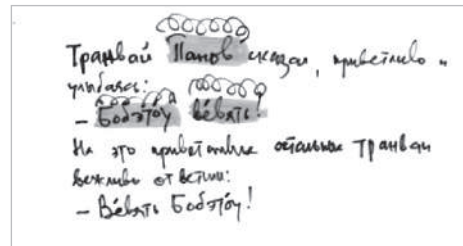 Транвай Панов сказал, приветливо
улыбаясь:
– Бобэтоу вéвять!
На это приветствие остальные транваи
вежливо ответили:
– Вéвять Бобэтóу!